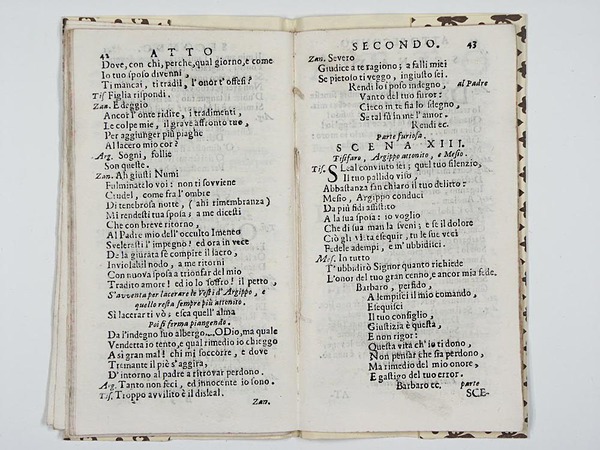 42 ATTO
Dove, con chi, perche, qual giorno, e come
Io tuo sposo divenni,
Ti mancai, ti tradii, l'onor t'offesi?
Tis. Figlia rispondi.
Zan. E deggio
Ancor l'onte ridire, i tradimenti,
Le colpe mie, il grave affronto tuo,
Per aggiunger più piaghe
Al lacero mio cor?
Arg. Sogni, follie
Son queste.
Zan. Ah giusti Numi
Fulminatelo voi: non ti sovviene
Crudel, come fra l'ombre
Di tenebrosa notte, (ahi rimembranza)
Mi rendesti tua sposa; a me dicesti
Che con breve ritorno,
Al Padre mio dell'occulto Imeneo
Sveleresti l'impegno! ed ora in vece
De la giurata fè compire il lacro,
Inviolabil nodo, a me ritorni
Con nuova sposa a trionfar del mio
Tradito amore! ed io lo soffro! il petto,
S'avventa per lacerare le Vesti d'Argippo, e
quello resta sempre più attonito.
Sì lacerar ti vò; esca quell'alma
Poi si ferma piangendo.
Da l'indegno suo albergo.... O Dio, ma quale
Vendetta io tento, e qual rimedio io chieggo
A sì gran mal! chi mi soccorre, e dove
Tremante il piè s'aggira,
D'intorno al padre a ritrovar perdono.
Arg. Tanto non feci, ed innocente io sono.
Tis. Troppo avvilito è il disleal.
Zan.
SECONDO. 43
Zan. Severo
Giudice a te ragiono; a falli miei
Se pietoso ti veggo, ingiusto sei.
Rendi lo i poso indegno, al Padre
Vanto del tuo furor:
Cieco in te fa lo sdegno,
Se tal fù in me l'amor.
Rendi ec.
Parte furiosa.
SCENA XIII.
Tisifaro, Argippo attonito, e Mesio.
Tis. SLeal convinto sei; quel tuo silenzio,
Il tuo pallido viso,
Abbastanza fan chiaro il tuo delitto:
Mesio, Argippo conduci
Da più fidi assistito
A la sua sposa: io voglio
Che di sua man la sveni; e se il dolore
Ciò gli vieta eseguir, tu le sue veci
Fedele adempi, e m'ubbidisci.
Mes. In tutto
T'ubbidirò Signor quanto richiede
L'onor del tuo gran cenno, e ancor mia fede.
Barbaro, perfido,
A lempisci il mio comando,
Esequisci
Il tuo consiglio,
Giustizia è questa,
E non rigor:
Questa vita ch'io ti dono,
Non pensar che sia perdono,
Ma rimedio del mio onore,
E gastigo del tuo error.
Barbaro ec. parte
SCE-